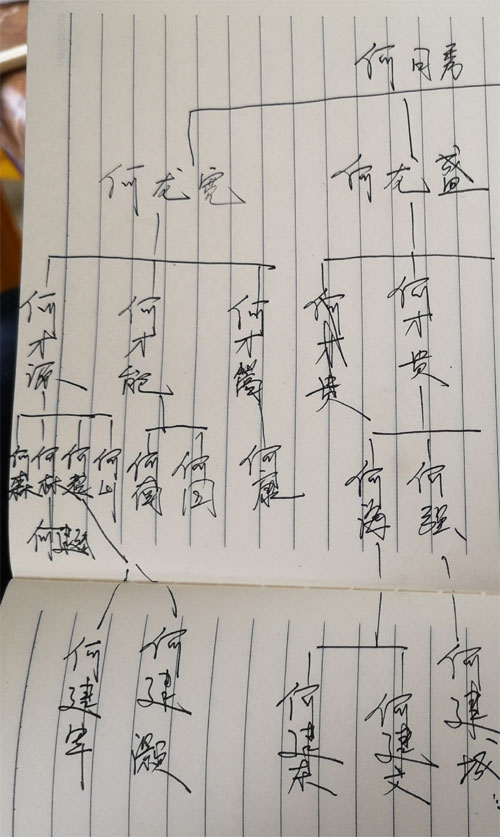 何日秀
何龙宽
何龙盛
何才源
何才能
何才富
何才贵
何才贵
何森
何林
何楚
何山
何国
何康
何海
何强
何建
何建军
何建灏
何建木
何建文
何建城